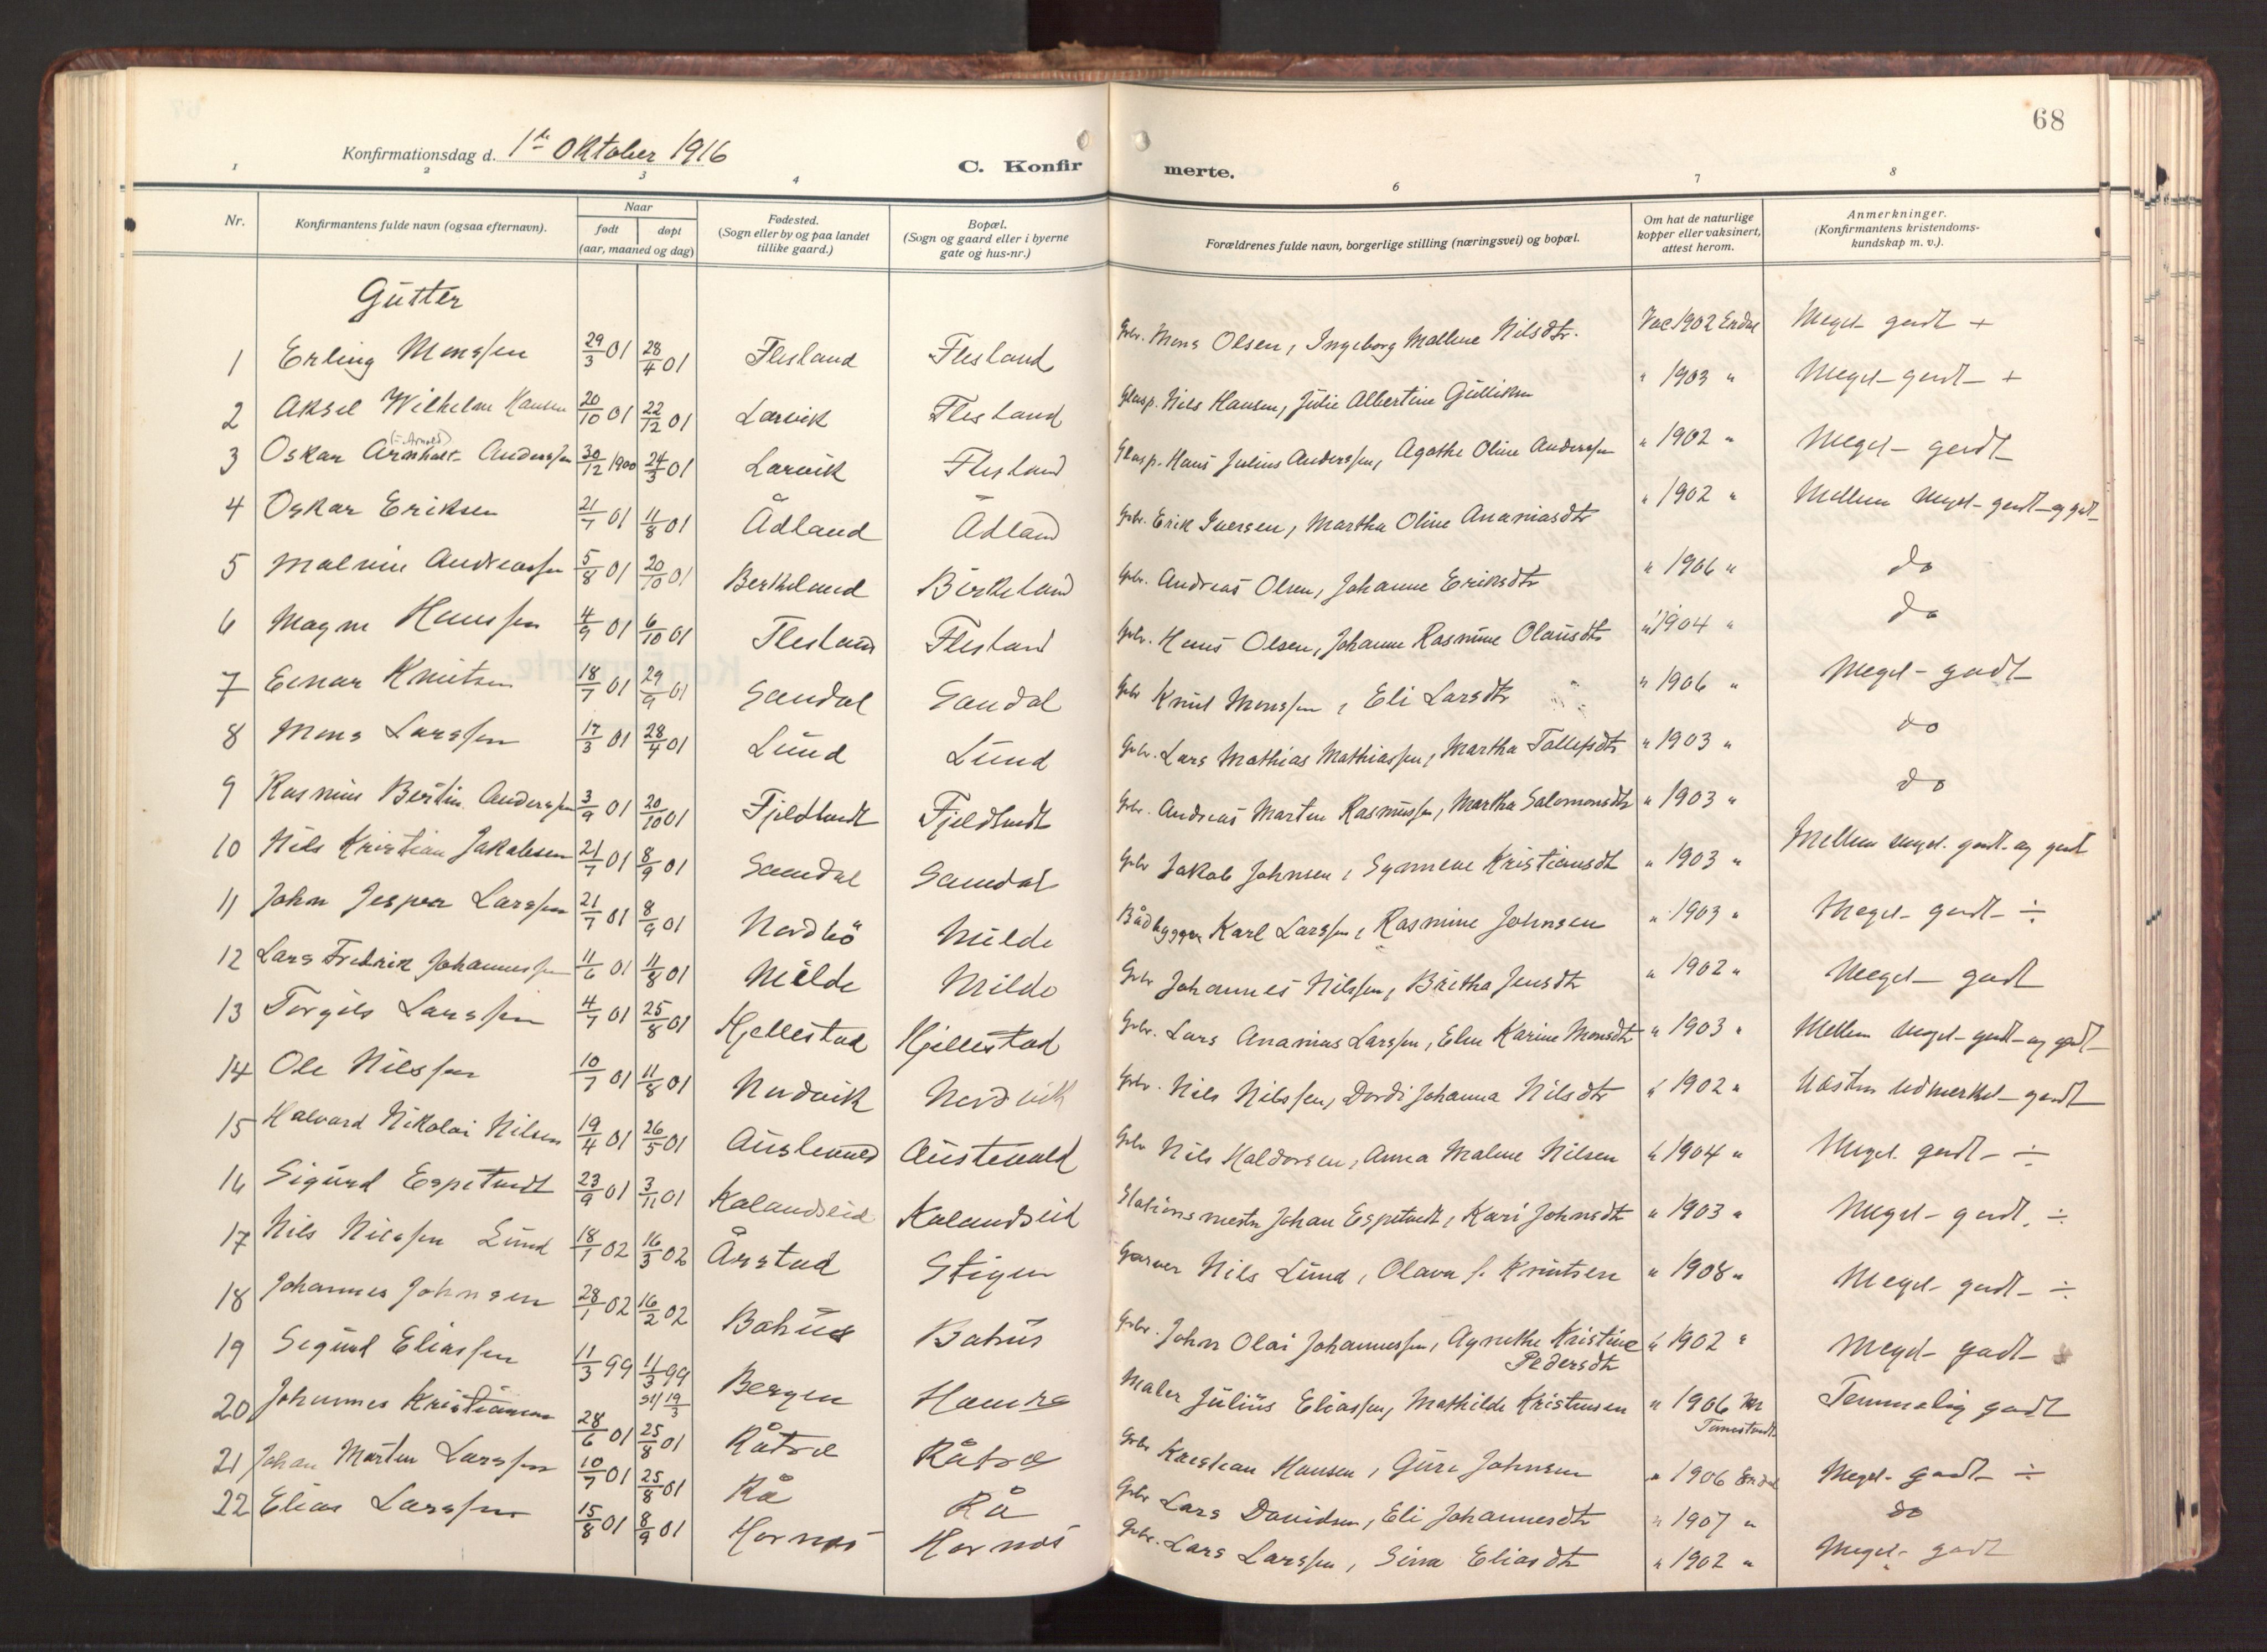 68
Konfirmationsdag d. 1ste Oktober 1916
C. Konfirmerte.
1 2 3 4 6 7 8
Nr. Konfirmantens fulde navn (ogsaa efternavn). Naar født døpt (aar, maaned og dag) Fødested. (Sogn eller by og paa landet tillike gaard.) Bopæl. (Sogn og gaard eller i byerne gate og hus-nr.) Forældrenes fulde navn, borgerlige stilling (næringsvei) og bopæl. Om hat de naturlige kopper eller vaksinert, attest herom. Anmerkninger. (Konfirmantens kristendoms-kundskap m. v.).
Gutter
1 Erling Monssen 29/3 01 28/4 01 Flesland Flesland Gbr. Mons Olsen, Ingeborg Malene Nilsdtr. Vac 1902 Endal Meget godt +
2 Aksel Wilhelm Hansen 20/10 01 22/12 01 Larvik Flesland Glasp. Nils Hansen, Julie Albertine Gulliksen " 1903 " Meget godt +
3 Oskar Arnholt (= Arnold) Anderssen 30/12 1900 24/3 01 Larvik Flesland Glasp. Hans Julius Anderssen, Agathe Oline Anderssen " 1902 " Meget godt
4 Oskar Eriksen 21/7 01 11/8 01 Ådland Ådland Gbr. Erik Iversen, Martha Oline Ananiasdtr " 1902 " Mellem meget godt og godt
5 Malvin Andreassen 5/8 01 20/10 01 Birkeland Birkeland Gbr. Andreas Olsen, Johanne Eriksdtr " 1906 " do
6 Magne Hanssen 4/9 01 6/10 01 Flesland Flesland Gbr. Hans Olsen, Johanne Rasmine Olausdtr " 1904 " do
7 Einar Knutsen 18/7 01 29/9 01 Sandal Sandal Gbr Knut Monssen, Eli Larsdtr " 1906 " Meget godt
8 Mons Larssen 17/3 01 28/4 01 Lund Lund Gbr. Lars Mathias Mathiassen, Martha Tollefsdtr " 1903 " do
9 Rasmus Bertin Anderssen 3/9 01 20/10 01 Fjeldtvedt Fjeldtvedt Gbr. Andreas Martin Rasmussen, Martha Salomonsdtr " 1903 " do
10 Nils Kristian Jakobsen 21/7 01 8/9 01 Sandal Sandal Gbr Jakob Johnsen, Synneve Kristiansdt " 1903 " Mellem meget godt og godt
11 John Jesper Larssen 21/7 01 8/9 01 Nordbö Milde Bådbygger Karl Larssen, Rasmine Johnsen " 1903 " Meget godt ÷
12 Lars Fredrik Johannessen 11/6 01 11/8 01 Milde Milde Gbr Johannes Nilssen, Britha Jensdtr " 1902 " Meget godt
13 Torgils Larssen 4/7 01 25/8 01 Hjellestad Hjellestad Gbr. Lars Ananias Larssen, Elen Karine Monsdtr " 1903 " Mellem meget godt og godt
14 Ole Nilssen 10/7 01 11/8 01 Nordvik Nordvik Gbr. Nils Nilssen, Dordi Johanna Nilsdtr " 1902 " Næsten udmerket godt
15 Halvard Nikolai Nilsen 19/4 01 26/5 01 Austevold Austevold Gbr Nils Haldorsen, Anna Malene Nilsen " 1904 " Meget godt ÷
16 Sigurd Espetvedt 23/9 01 3/11 01 Kalandseid Kalandseid Stationsmester Johan Espetvedt, Kari Johnsdtr " 1903 " Meget godt. ÷
17 Nils Nilssen Lund 18/1 02 16/3 02 Årstad Stigen Garver Nils Lund, Olava f. Knutsen " 1908 " Meget godt ÷
18 Johannes Johnsen 28/1 02 16/2 02 Bahus Bahus Gbr. John Olai Johannessen, Agnethe Kristine Pedersdtr " 1902 " Meget godt
19 Sigurd Eliassen 11/3 99 11/3 99 st/ 19/3 Bergen Hamre Maler Julius Eliassen, Mathilde Kristensen " 1906 Temmelig godt
20 Johannes Kristiansen 28/6 01 25/8 01 Råtræ Råtræ Gbr Kristian Hansen, Guri Johnsen " 1906 Endal Meget godt ÷
21 Johan Martin Larssen 10/7 01 25/8 01 Rå Rå Gbr Lars Davidsen, Eli Johannesdtr " 1907 " do
22 Elias Larssen 15/8 01 8/9 01 Hornæs Hornæs Gbr. Lars Larssen, Sina Eliasdtr " 1902 " Meget godt